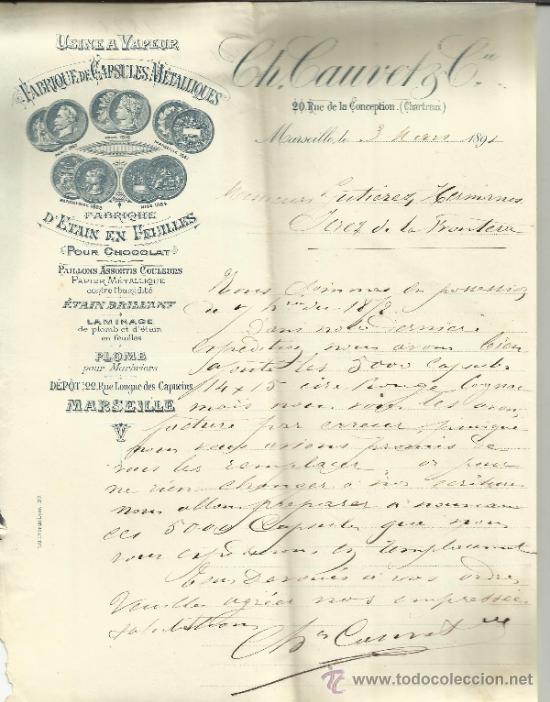 USINE A VAPEUR
FABRIQUE DE CAPSULES MÉTALLIQUES
FABRIQUE
D'ETAIN EN FEUILLES
POUR CHOCOLAT
PAILLONS ASSORTIS COULEURS
PAPIER MÉTALLIQUE
contre l'humidité
ÉTAIN BRILLANT
LAMINAGE
de plomb et d'étain
en feuilles
PLOMB
pour Marbriers
DÉPÔT: 22, Rue Longue des Capucins
MARSEILLE
Ch. Cauvet & Cie
20, Rue de la Conception. (Chartreux)
Marseille, le 3 Mars 1891
Messieurs Gutierez Hermanos
Jerez de la Frontera
Nous sommes en possession
de
Dans notre dernière
expédition nous avons bien
ajouté les 5000 capsules
14 x 15 cire Rouge Cognac
mais nous les avons
facturé par erreur, puisque
nous vous avions promis de
vous les remplacer, or pour
ne rien changer à nos écritures
nous allons préparer à nouveau
ces 5000 Capsules que nous
vous expédierons en remplacement
Tous dévoués à vos ordres
Veuillez agréer nos empressées
salutations
Ch Cauvet & Cie
todocoleccion.net